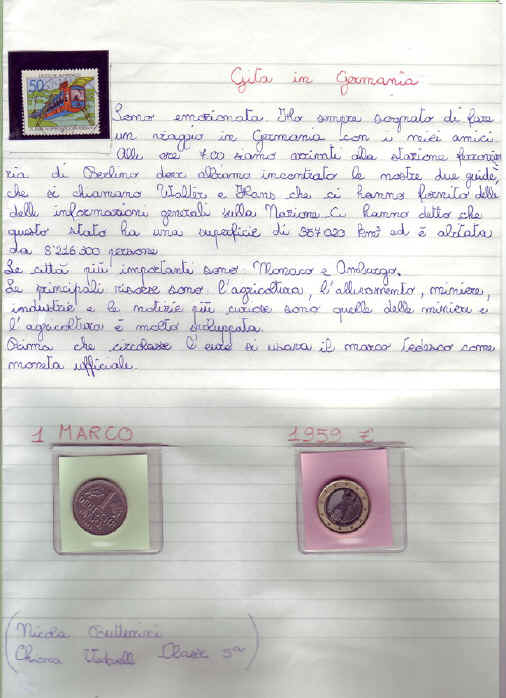 50
Gita in Germania
Sono emozionata. Ho sempre sognato di fare
un viaggio in Germania con i miei amici.
Alle ore 7.00 siamo arrivati alla stazione ferrovia
ria di Berlino dove abbiamo incontrato le nostre due guide,
che si chiamano Walter e Hans che ci hanno fornito delle
delle informazioni generali sulla Nazione. Ci hanno detto che
questo stato ha una superficie di 357 020 Km² ed è abitata
da 8 246 300 persone.
Le città più importanti sono: Monaco e Amburgo.
Le principali risorse sono: l'agricoltura, l'allevamento, miniere,
industrie e le notizie più curiose sono quelle delle miniere e
l'agricoltura è molto sviluppata.
Prima che circolasse l'euro si usava il marco tedesco come
moneta ufficiale.
1 MARCO
1959 £
Nicola
Chiara Classe 5ª